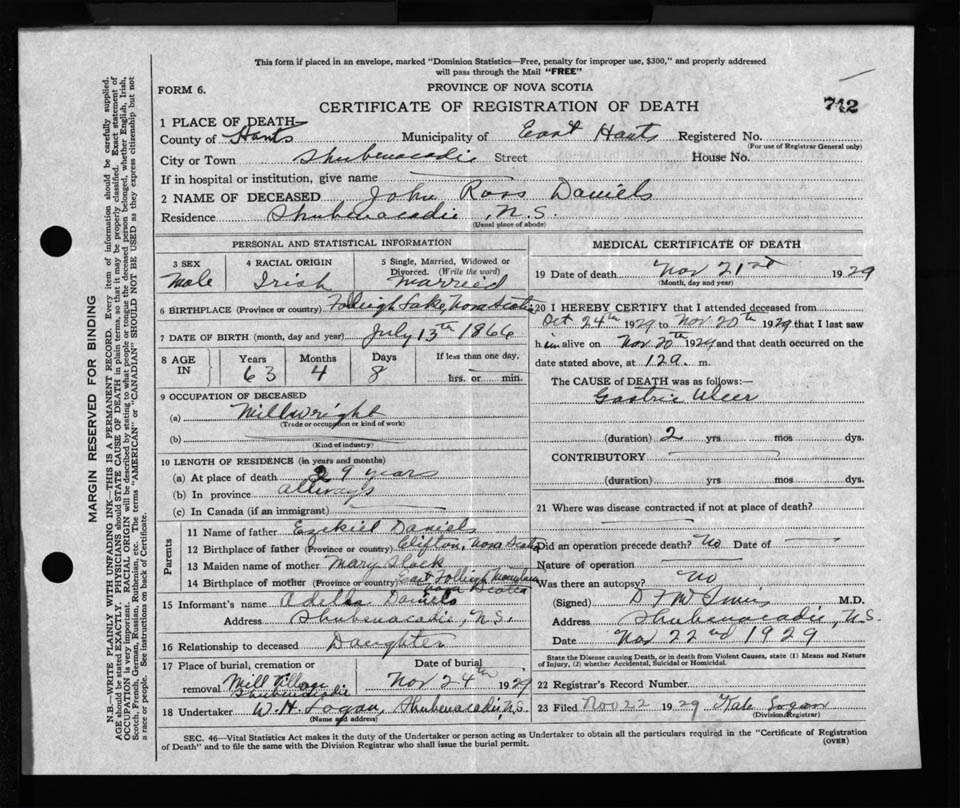 This form if placed in an envelope, marked "Dominion Statistics—Free, penalty for improper use, $300," and properly addressed
will pass through the Mail "FREE"
FORM 6.
PROVINCE OF NOVA SCOTIA
CERTIFICATE OF REGISTRATION OF DEATH
742
1 PLACE OF DEATH
County of Hants Municipality of East Hants Registered No.
(For use of Registrar General only)
City or Town Shubenacadie Street House No.
If in hospital or institution, give name
2 NAME OF DECEASED John Ross Daniels
Residence Shubenacadie, N.S.
(Usual place of abode)
PERSONAL AND STATISTICAL INFORMATION
3 SEX
Male
4 RACIAL ORIGIN
Irish
5 Single, Married, Widowed or
Divorced. (Write the word)
Married
6 BIRTHPLACE (Province or country) Folleigh Lake, Nova Scotia
7 DATE OF BIRTH (month, day and year) July 13th 1866
8 AGE
IN
Years
63
Months
4
Days
8
If less than one day.
hrs. or min.
9 OCCUPATION OF DECEASED
(a) Millwright
(Trade or occupation or kind of work)
(b)
(Kind of industry)
10 LENGTH OF RESIDENCE (in years and months)
(a) At place of death 29 years
(b) In province allways
(c) In Canada (if an immigrant)
Parents
11 Name of father Ezekiel Daniels
12 Birthplace of father (Province or country) Clifton, Nova Scotia
13 Maiden name of mother Mary Slack
14 Birthplace of mother (Province or country) East Folleigh Mountain
Nova Scotia
15 Informant's name Adella Daniels
Address Shubenacadie, N.S.
16 Relationship to deceased Daughter
17 Place of burial, cremation
or
removal Mill Village
Shubenacadie
Date of burial
Nov 24th 1929
18 Undertaker W. H. Logan, Shubenacadie, N.S.
(Name and address)
MEDICAL CERTIFICATE OF DEATH
19 Date of death Nov 21st 1929
(Month, day and year)
20 I HEREBY CERTIFY that I attended deceased from
Oct 24th 1929 to Nov 20th 1929 that I last saw
him alive on Nov 20th 1929 and that death occurred on the
date stated above, at 12 a. m.
The CAUSE of DEATH was as follows:—
Gastric Ulcer
(duration) 2 yrs mos dys.
CONTRIBUTORY
(duration) yrs. mos. dys.
21 Where was disease contracted if not at place of death?
Did an operation precede death? No Date of
Nature of operation
Was there an autopsy? No
(Signed) M.D.
Address Shubenacadie, N.S.
Date Nov 22nd 1929
State the Disease causing Death, or in death from Violent Causes, state (1) Means and Nature
of Injury, (2) whether Accidental, Suicidal or Homicidal.
22 Registrar's Record Number
23 Filed Nov 22 1929 Kate Logan
(Division Registrar)
SEC. 46—Vital Statistics Act makes it the duty of the Undertaker or person acting as Undertaker to obtain all the particulars required in the "Certificate of Registration
of Death" and to file the same with the Division Registrar who shall issue the burial permit.
(OVER)
MARGIN RESERVED FOR BINDING
N.B.—WRITE PLAINLY WITH UNFADING INK—THIS IS A PERMANENT RECORD. Every item of information should be carefully supplied.
AGE should be stated EXACTLY. PHYSICIANS should STATE CAUSE OF DEATH in plain terms, so that it may be properly classified. Exact statement of
OCCUPATION is very important. RACIAL ORIGIN will be described by stating to what people or tongue the deceased person belonged, whether English, Irish,
Scotch, French, German, Russian, Ruthenian, etc. The terms "AMERICAN" or "CANADIAN" SHOULD NOT BE USED as they express citizenship but not
a race or people. See instructions on back of Certificate.